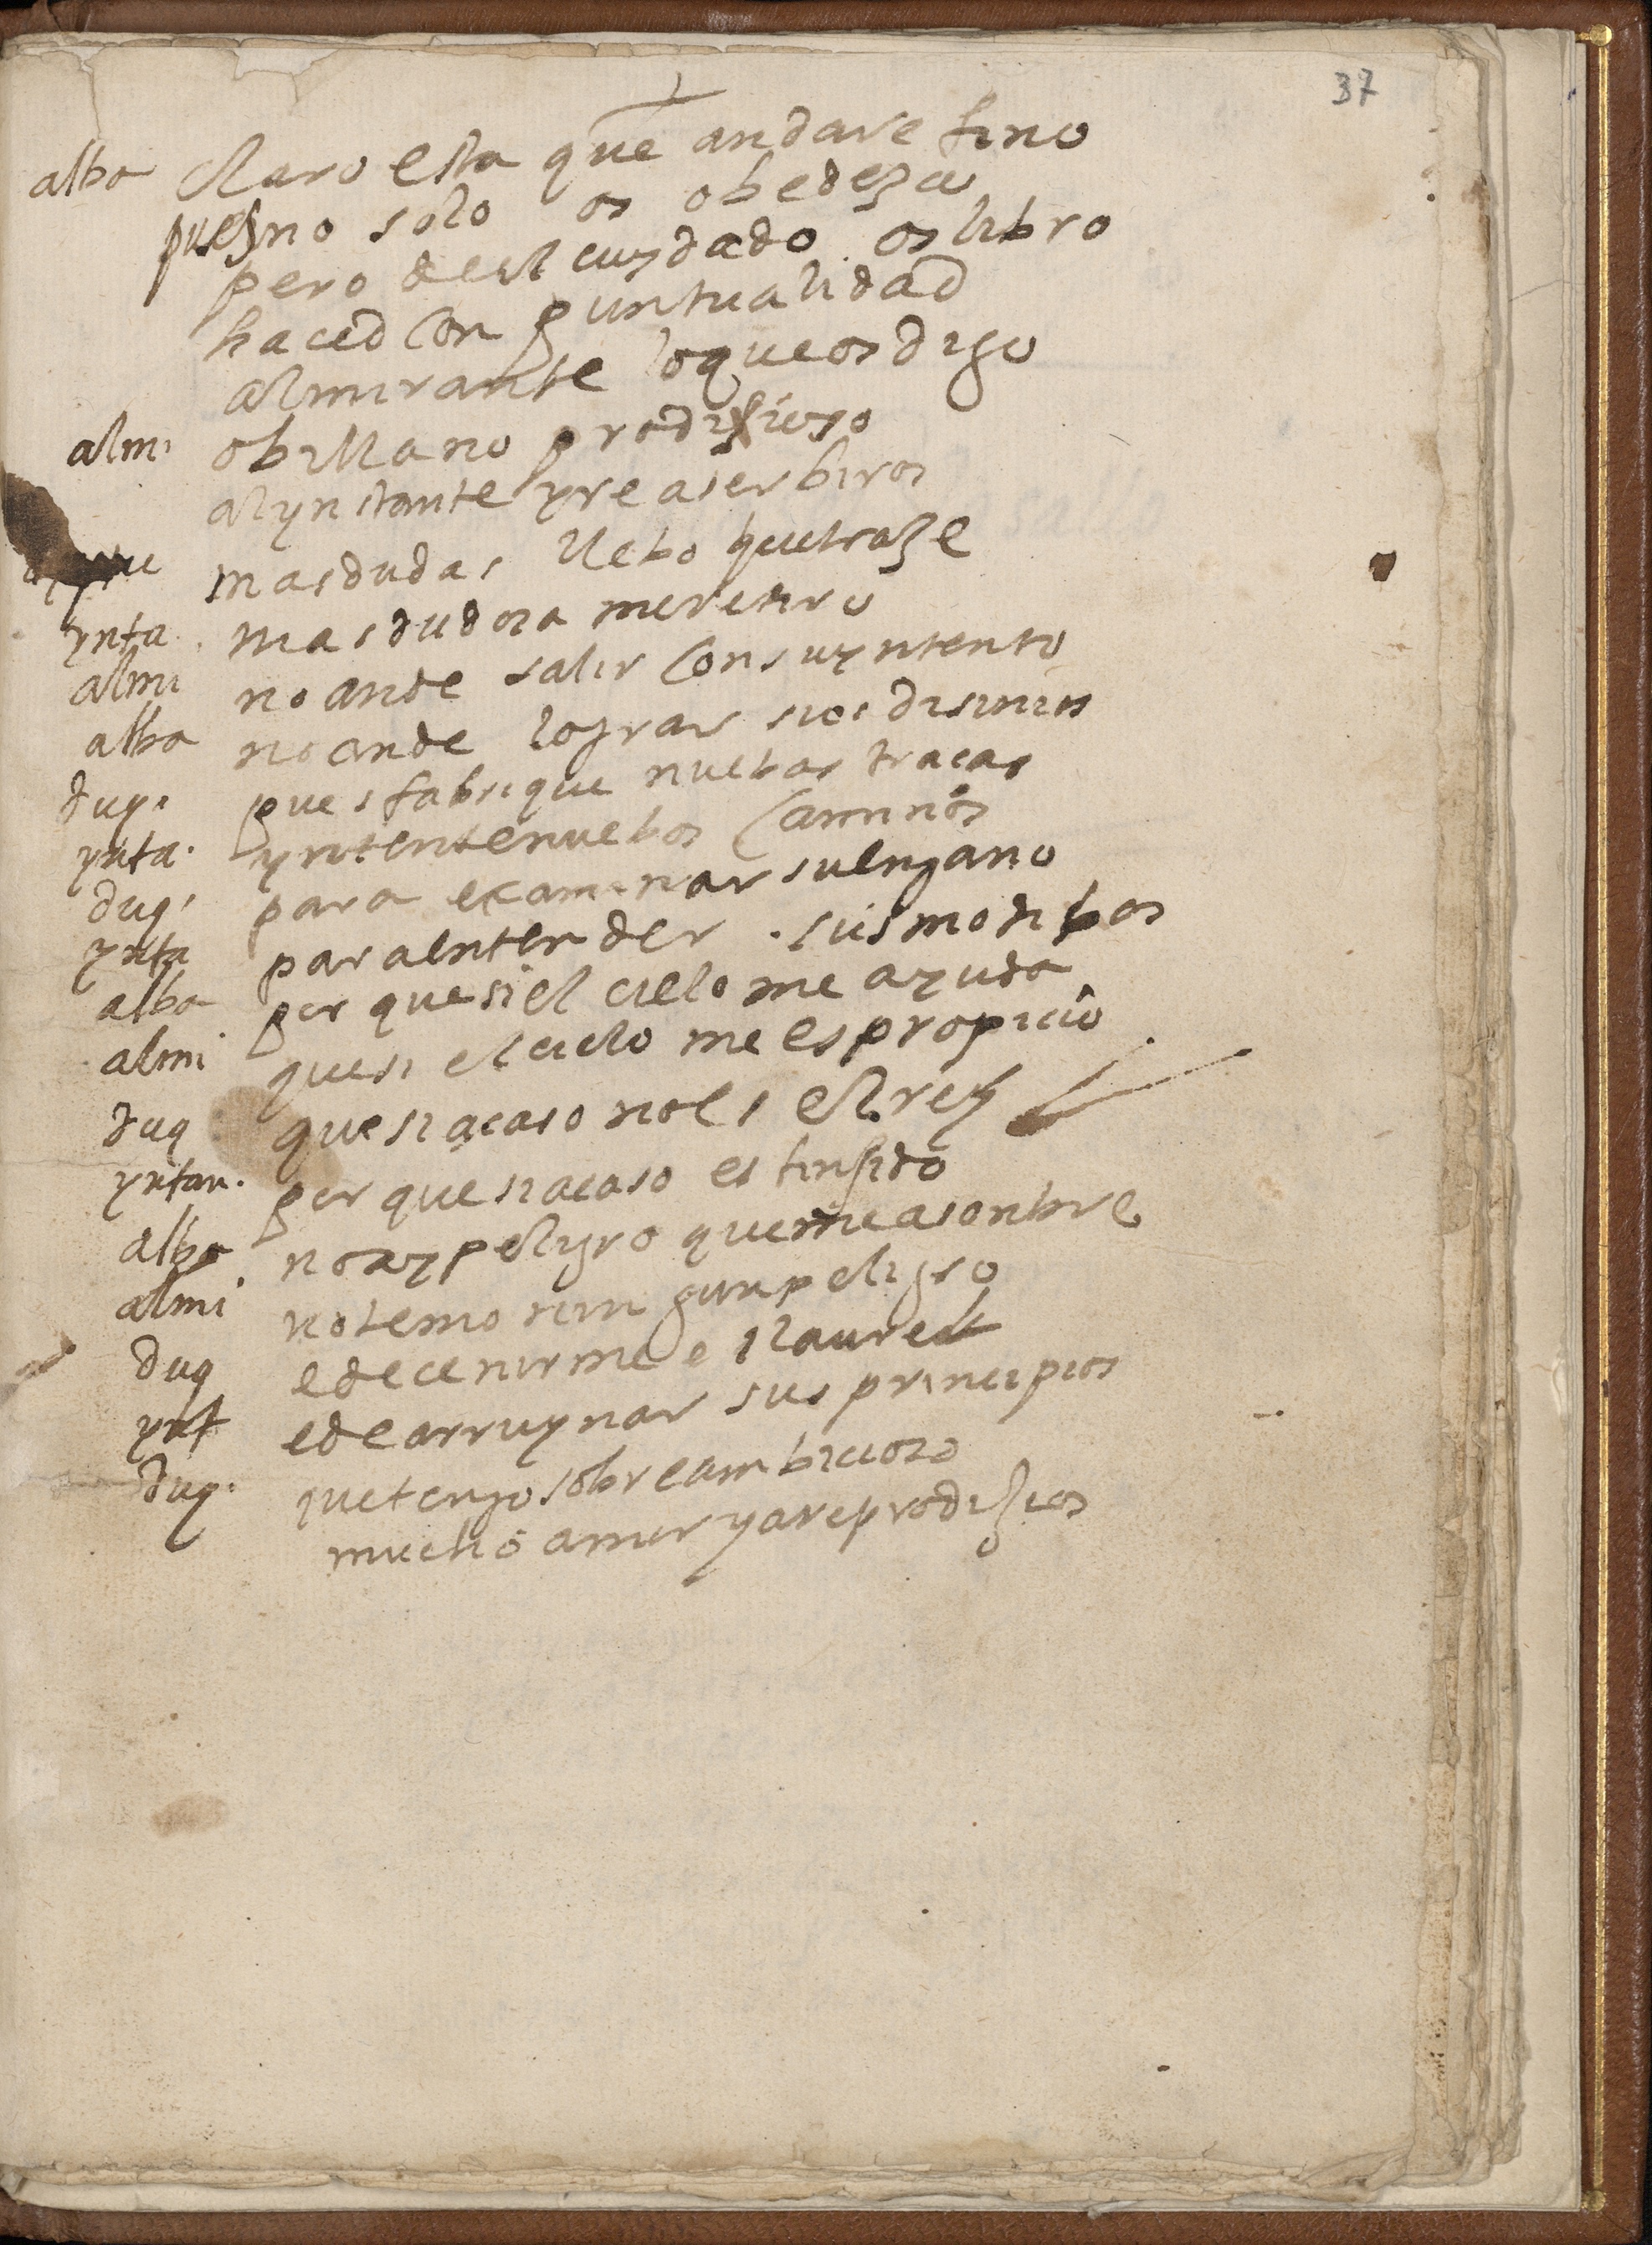 37
alba claro esta que andare fino
pues no solo os obedezco
pero de el cuydado os libro
haced con puntualidad
almirante lo que os digo
alm. o billano prodijioso
al ynstante yre a serbiros
mas dudas llebo que traje
ynta. mas dudosa me retiro
almi no an de salir con su yntento
alba no an de lograr sus disinios
duq. pues fabrique nuebas traças
ynta. yntente nuebos caminos
duq. para examinar su engano
ynta para entender sus motibos
alba por que si el cielo me ayuda
almi que si el cielo me es propicio
duq que si acaso no es el rey
yntan. por que si acaso es finjido
alba no ay peligro que me asonbre
almi no temo ningun peligro
duq e de cenirme el laurel
ynt e de arruynar sus principios
duq. que tengo sobre ambicioso
mucho amor y are prodijios